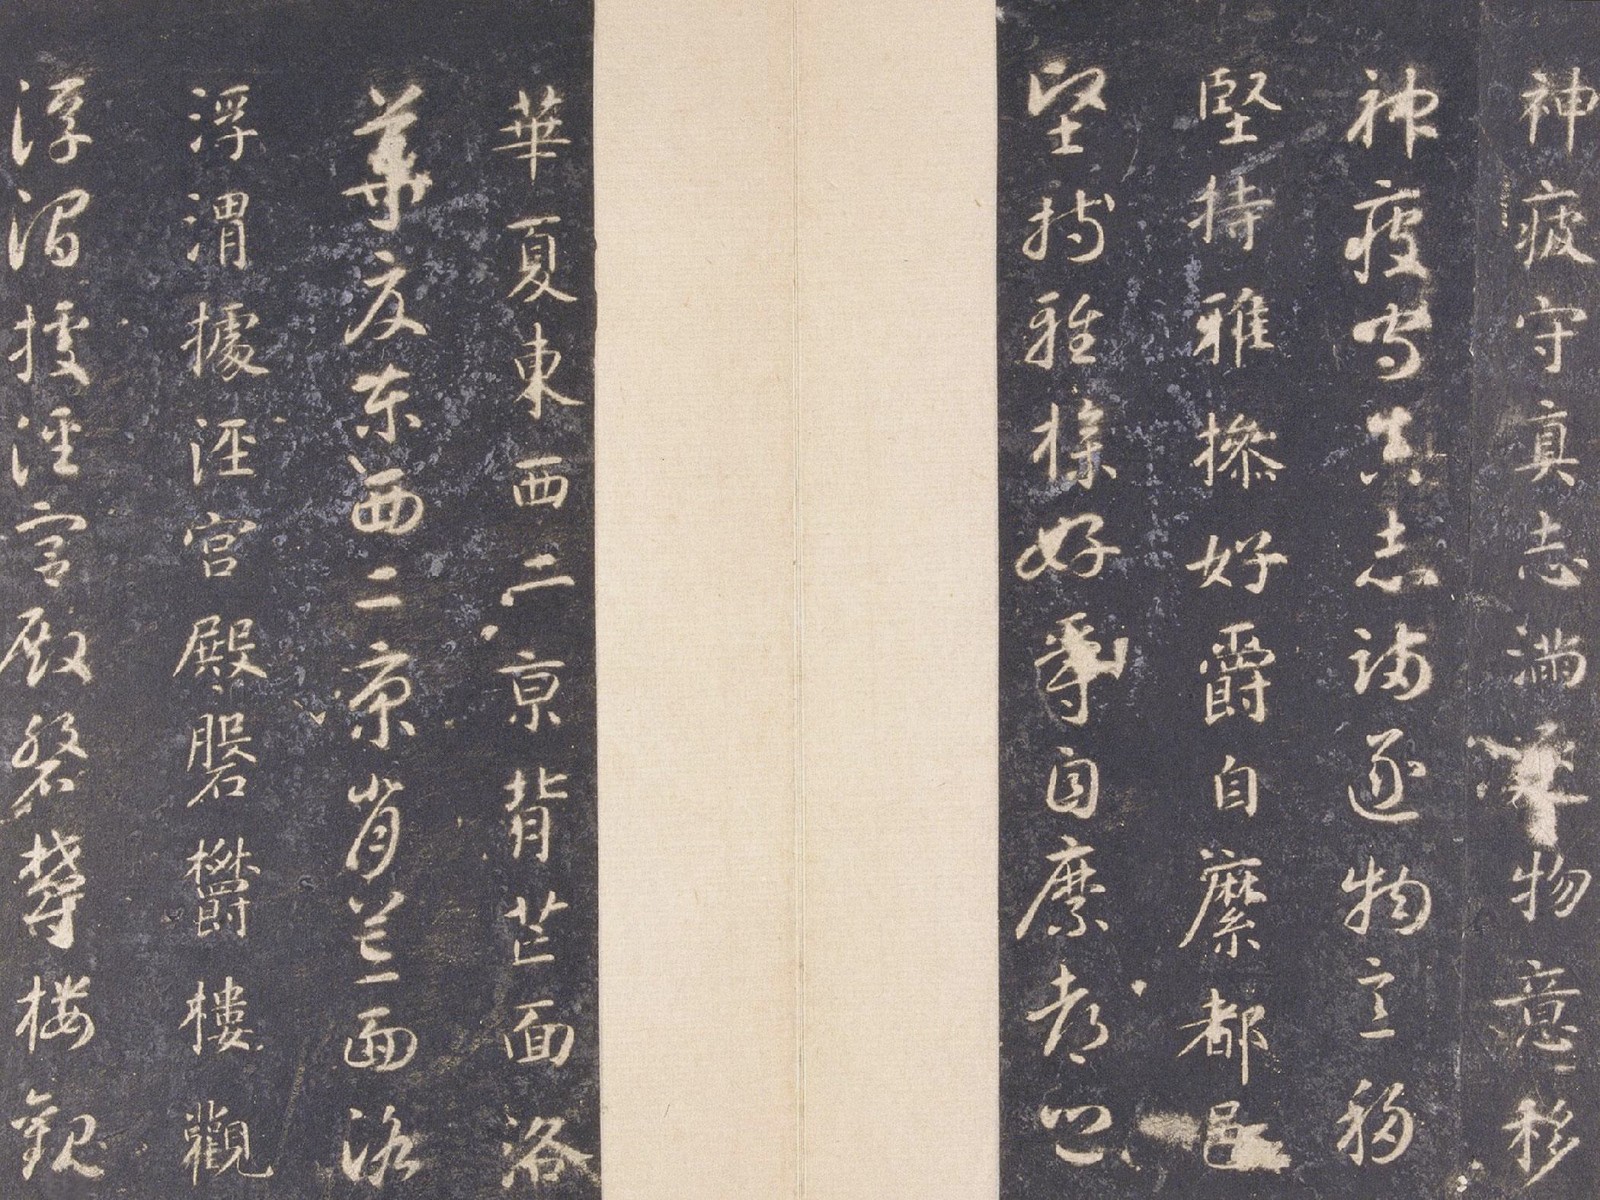 神疲守真志滿逐物意移
神疲守真志滿逐物意移
堅持雅操好爵自縻都邑
堅持雅操好爵自縻都邑
華夏東西二京背芒面洛
華夏東西二京背芒面洛
浮渭據涇宮殿磐鬱樓觀
浮渭據涇宮殿磐鬱樓觀